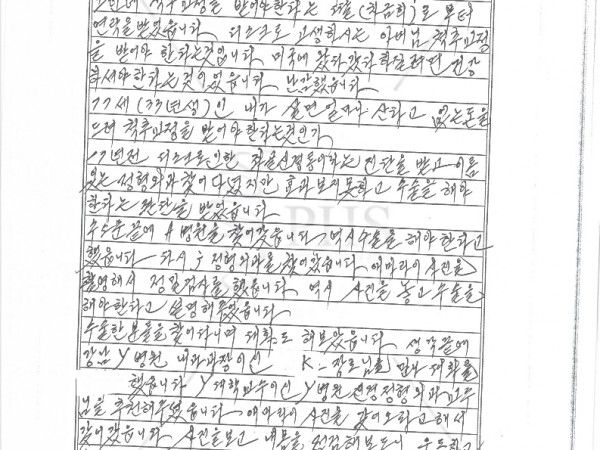 척추교정을 받아야한다는 딸(최금희)로 부터
연락을 받았습니다. 디스크로 고생하시는 아버님 척추교정
을 받아야 한다는것입니다. 미국에 왔다갔다 하실려면 건강
하셔야한다는것이었습니다. 난감했습니다.
77세(33년생)인 내가 살면 얼마나 산다고 없는돈을
드려 척추교정을 받아야한다는것인가
17년전 디스크로인한 좌골신경통이라는 진단을 받고 이름
있는 정형외과 찾어 다녔지만 효과보지못하고 수술을 해야
한다는 판단을 받었습니다.
수소문끝에 A 병원을 찾어갔습니다. 역시수술을 해야한다고
했습니다. 다시 J 정형외과를 찾어갔습니다. 에마라이 사진을
촬영해서 정밀검사를 했습니다. 역시 사진을 놓고 수술을
해야한다고 설명해주었습니다
수술한분들을 찾어다니며 대화도 해보았습니다. 생각끝에
강남 Y 병원 내과과장이신 K-장로님을 만나 대화을
했습니다 Y대학교수이신 Y병원 신경정형외과교수
님을 추천해주셨습니다. 에마라이 사진을 갖어오라고해서
갖어갔습니다 사진을보고 내용을 점검해보드니